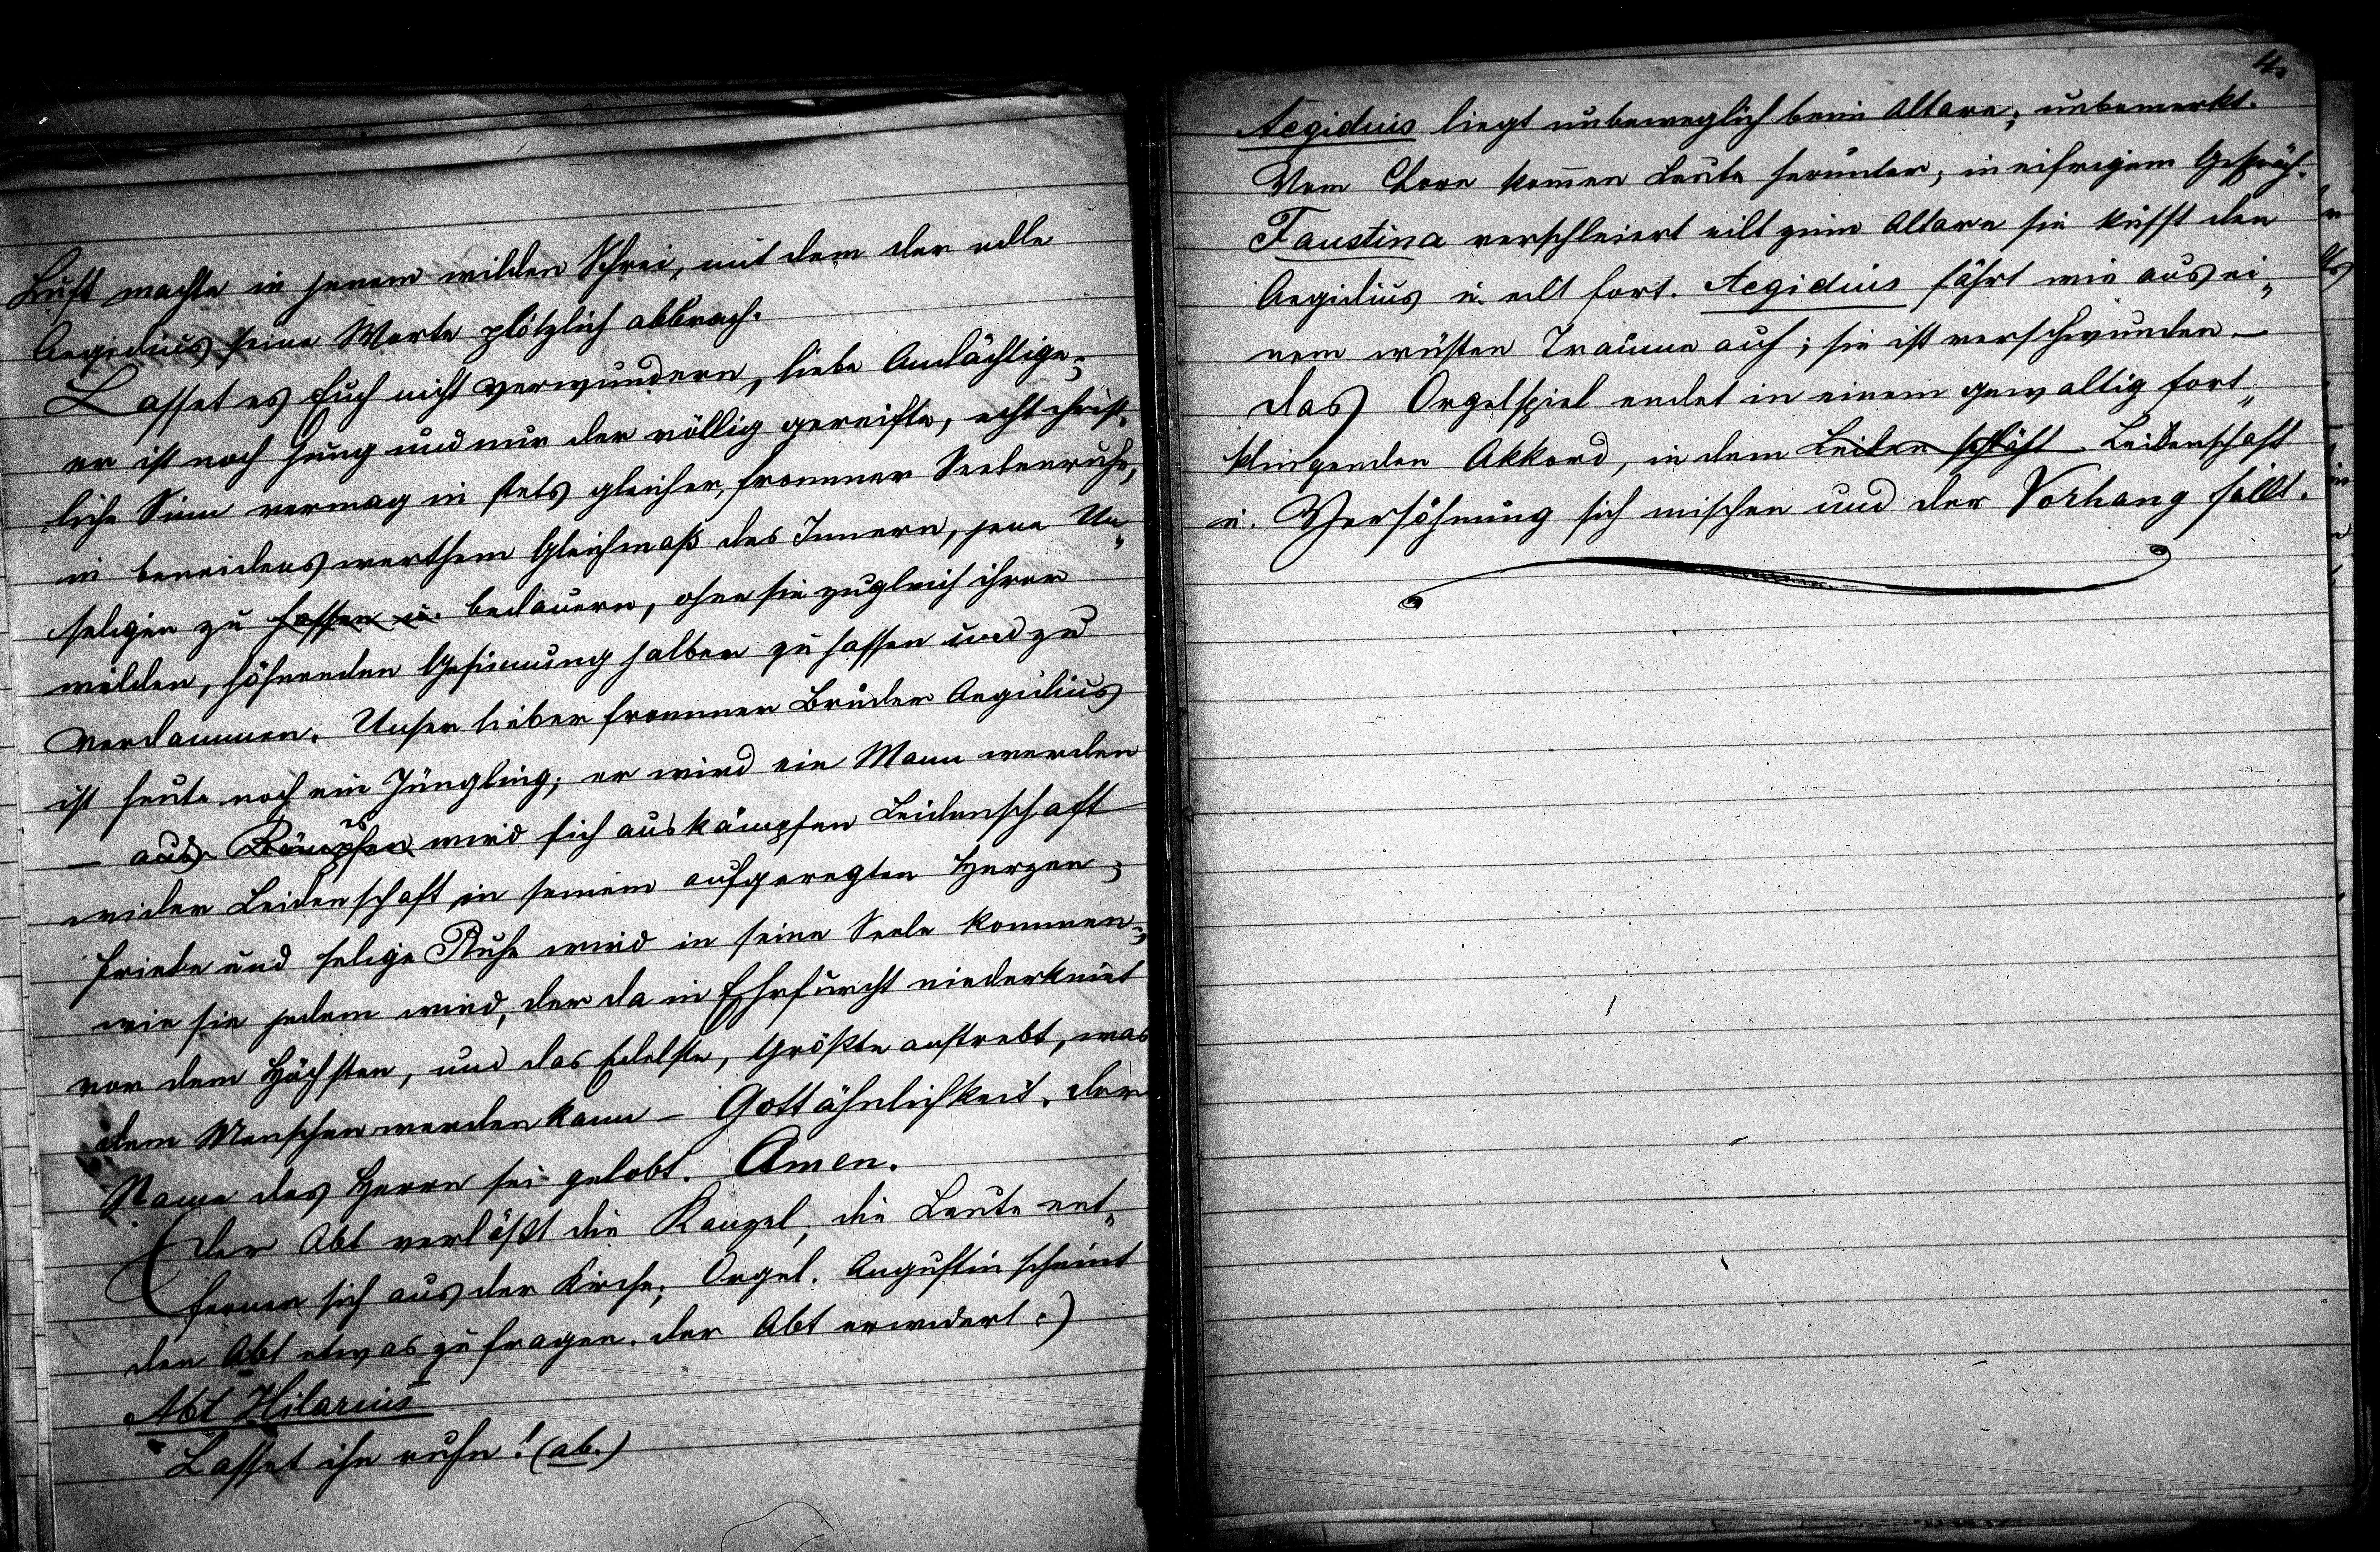 Luft machte in jenem wilden Schrei, mit dem der edle
Aegidius seine Worte plötzlich abbrach.
Lasset es Euch nicht verwundern, liebe Andächtige;
er ist noch jung und nur der völlig gereifte, echt christ„
liche Sinn vermag in stets gleicher, frommer Seelenruhe,
in beneidenswerthem Gleichmaß des Innern, jene Un„
seligen zu hassen u. bedauern, ohne sie zugleich ihrer
wilden, höhnenden Gesinnung halber zu hassen und zu
verdammen. Unser lieber frommer Bruder Aegidius
ist heute noch ein Jüngling; er wird ein Mann werden
– aus Kämpfen es wird sich auskämpfen Leidenschaft
wider Leidenschaft in seinem aufgeregten Herzen;
Friede und selige Ruhe wird in seine Seele kommen;
wie sie jedem wird, der da in Ehrfurcht niederkniet
vor dem Höchsten, und das Edelste, Größte anstrebt, was
dem Menschen werden kann – Gottähnlichkeit. Der
Name des Herrn sei gelobt. Amen.
(Der Abt verläßt die Kanzel; die Leute ent„
fernen sich aus der Kirche; Orgel. Augustin scheint
den Abt etwas zu fragen. der Abt erwidert:)
Abt Hilarius
Lasset ihn ruhn! (ab.)
4.
Aegidius liegt unbeweglich beim Altare; unbemerkt.
Vom Chore kom̄en Leute herunter, in eifrigem Gespräch.
Faustina verschleiert eilt zum Altare sie küsst den
Aegidius u. eilt fort. Aegidius fährt wie aus ei„
nem wüsten Traume auf; sie ist verschwunden –
das Orgelspiel endet in einem gewaltig fort„
klingenden Akkord, in dem Leidenschaft Leidenschaft
u. Versöhnung sich mischen und der Vorhang fällt.